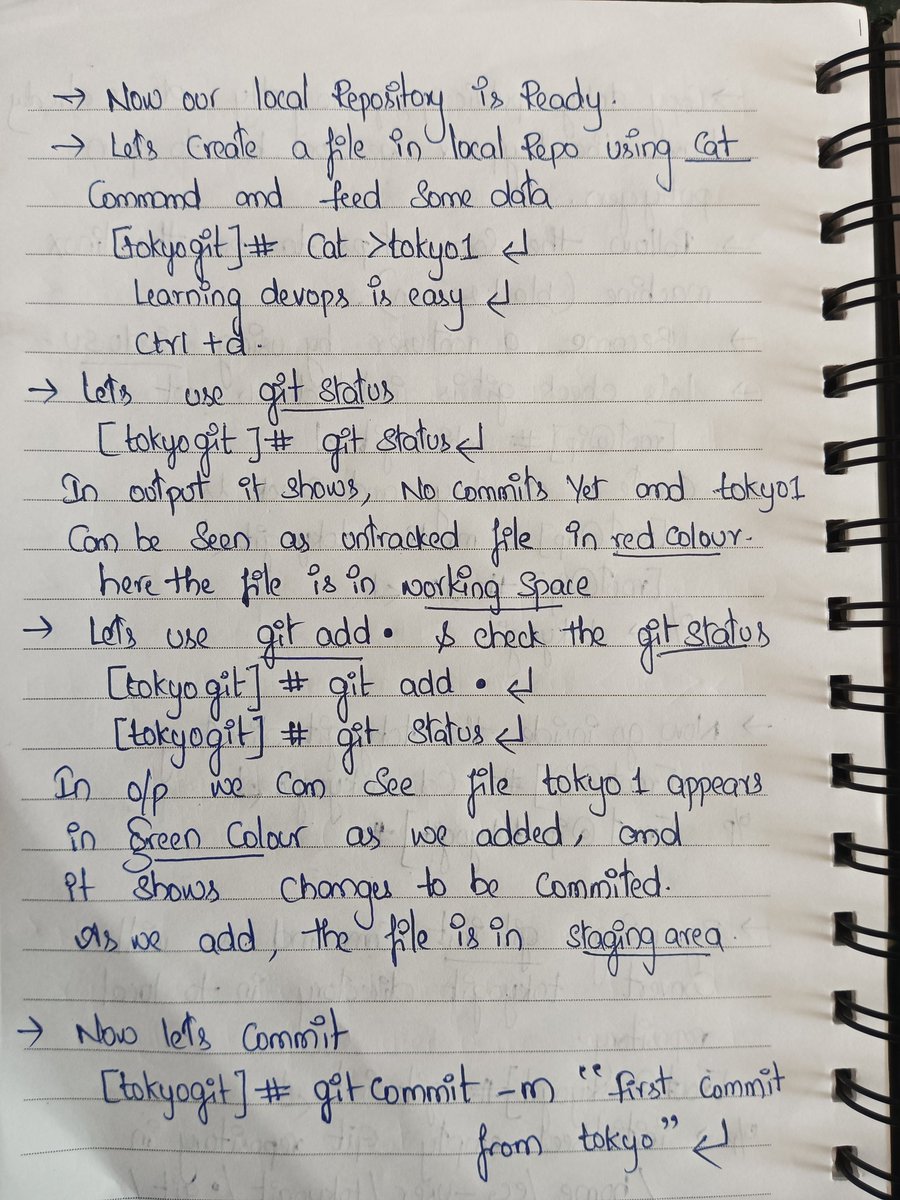 → Now our local Repository is Ready.
→ Lets Create a file in local Repo using Cat
Command and feed Some data
[tokyogit]# Cat >tokyo1 ↵
Learning devops is easy ↵
Ctrl +d.
→ Lets use git status
[tokyogit]# git status ↵
In output it shows, No commits Yet and tokyo1
Can be Seen as untracked file in red colour.
here the file is in working Space
→ Lets use git add . & check the git status
[tokyogit] # git add . ↵
[tokyogit] # git status ↵
In o/p we Can See file tokyo1 appears
in Green Colour as we added, and
it shows changes to be Commited.
As we add, the file is in staging area.
→ Now lets Commit
[tokyogit]# git commit -m "first commit
from tokyo" ↵